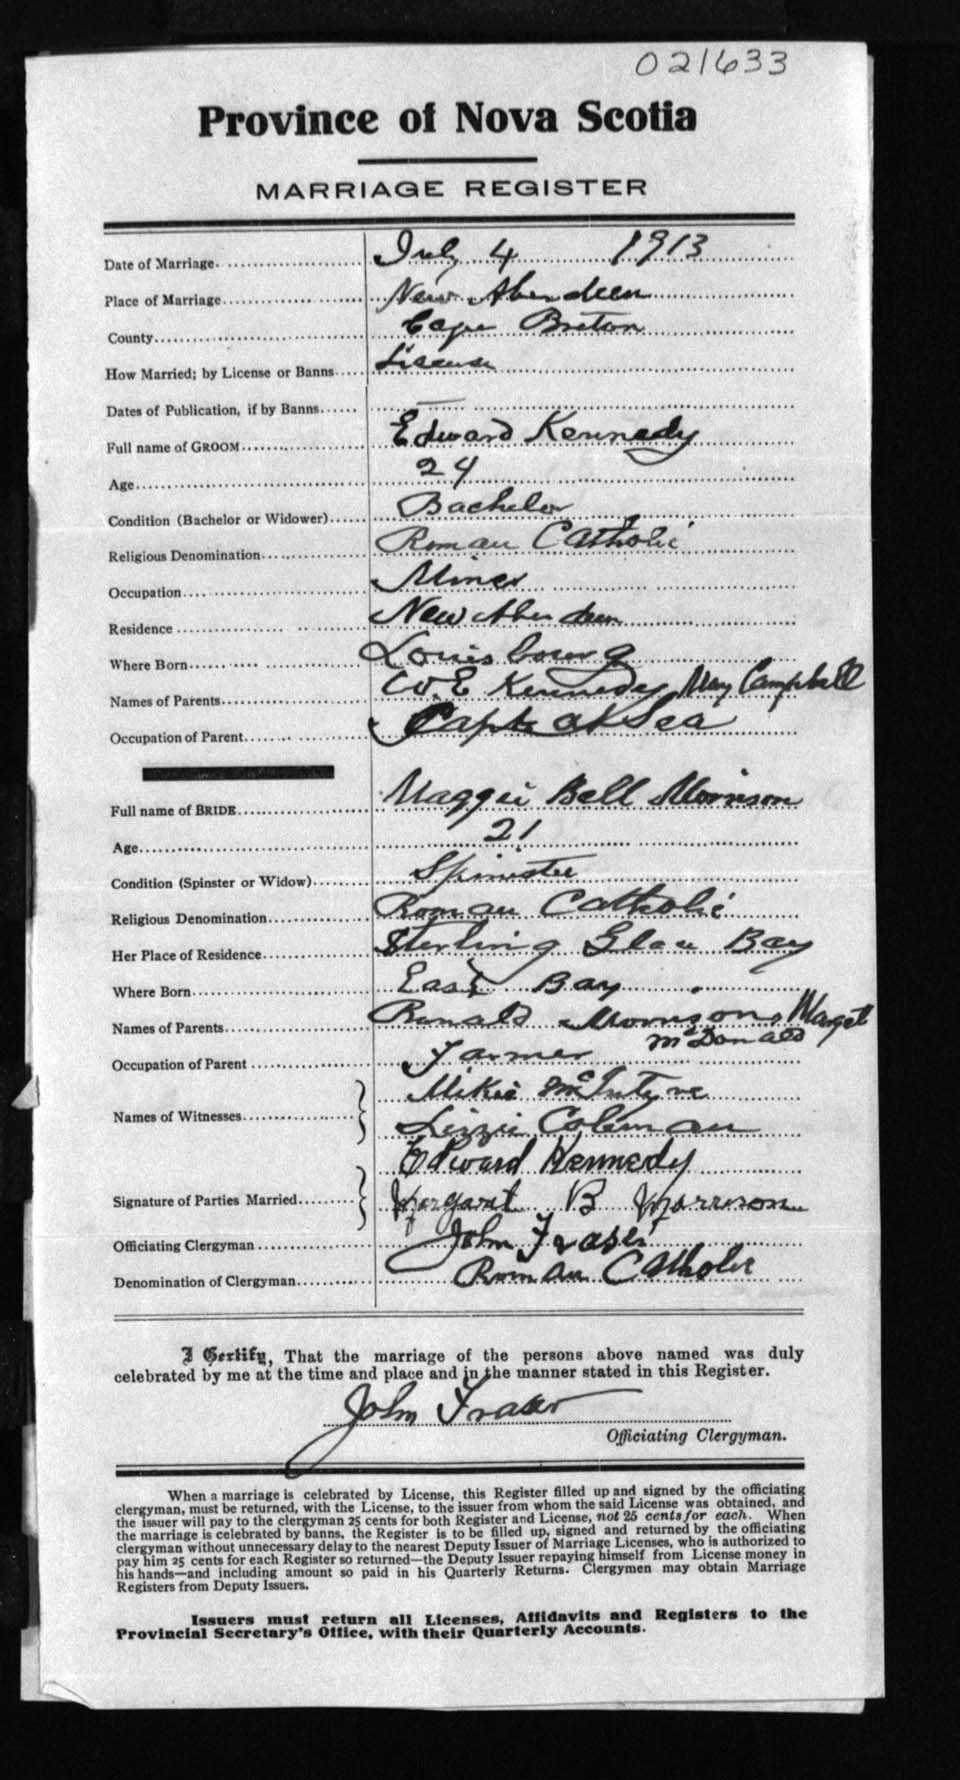 021633
Province of Nova Scotia
MARRIAGE REGISTER
Date of Marriage July 4 1913
Place of Marriage New Aberdeen
County Cape Breton
How Married; by License or Banns License
Dates of Publication, if by Banns —
Full name of GROOM Edward Kennedy
Age 24
Condition (Bachelor or Widower) Bachelor
Religious Denomination Roman Catholic
Occupation Miner
Residence New Aberdeen
Where Born Louisbourg
Names of Parents W. E Kennedy, May Campbell
Occupation of Parent Capt at Sea
Full name of BRIDE Maggie Bell Morrison
Age 21
Condition (Spinster or Widow) Spinster
Religious Denomination Roman Catholic
Her Place of Residence Sterling Glace Bay
Where Born East Bay
Names of Parents Ronald Morrison, Marget
McDonald
Occupation of Parent Farmer
Names of Witnesses Mikie McIntyre
Lizzie Coleman
Signature of Parties Married Edward Kennedy
Margaret B Morrison
Officiating Clergyman John Fraser
Denomination of Clergyman Roman Catholic
I Certify, That the marriage of the persons above named was duly
celebrated by me at the time and place and in the manner stated in this Register.
John Fraser
Officiating Clergyman.
When a marriage is celebrated by License, this Register filled up and signed by the officiating
clergyman, must be returned, with the License, to the issuer from whom the said License was obtained, and
the issuer will pay to the clergyman 25 cents for both Register and License, not 25 cents for each. When
the marriage is celebrated by banns, the Register is to be filled up, signed and returned by the officiating
clergyman without unnecessary delay to the nearest Deputy Issuer of Marriage Licenses, who is authorized to
pay him 25 cents for each Register so returned—the Deputy Issuer repaying himself from License money in
his hands—and including amount so paid in his Quarterly Returns. Clergymen may obtain Marriage
Registers from Deputy Issuers.
Issuers must return all Licenses, Affidavits and Registers to the
Provincial Secretary's Office, with their Quarterly Accounts.